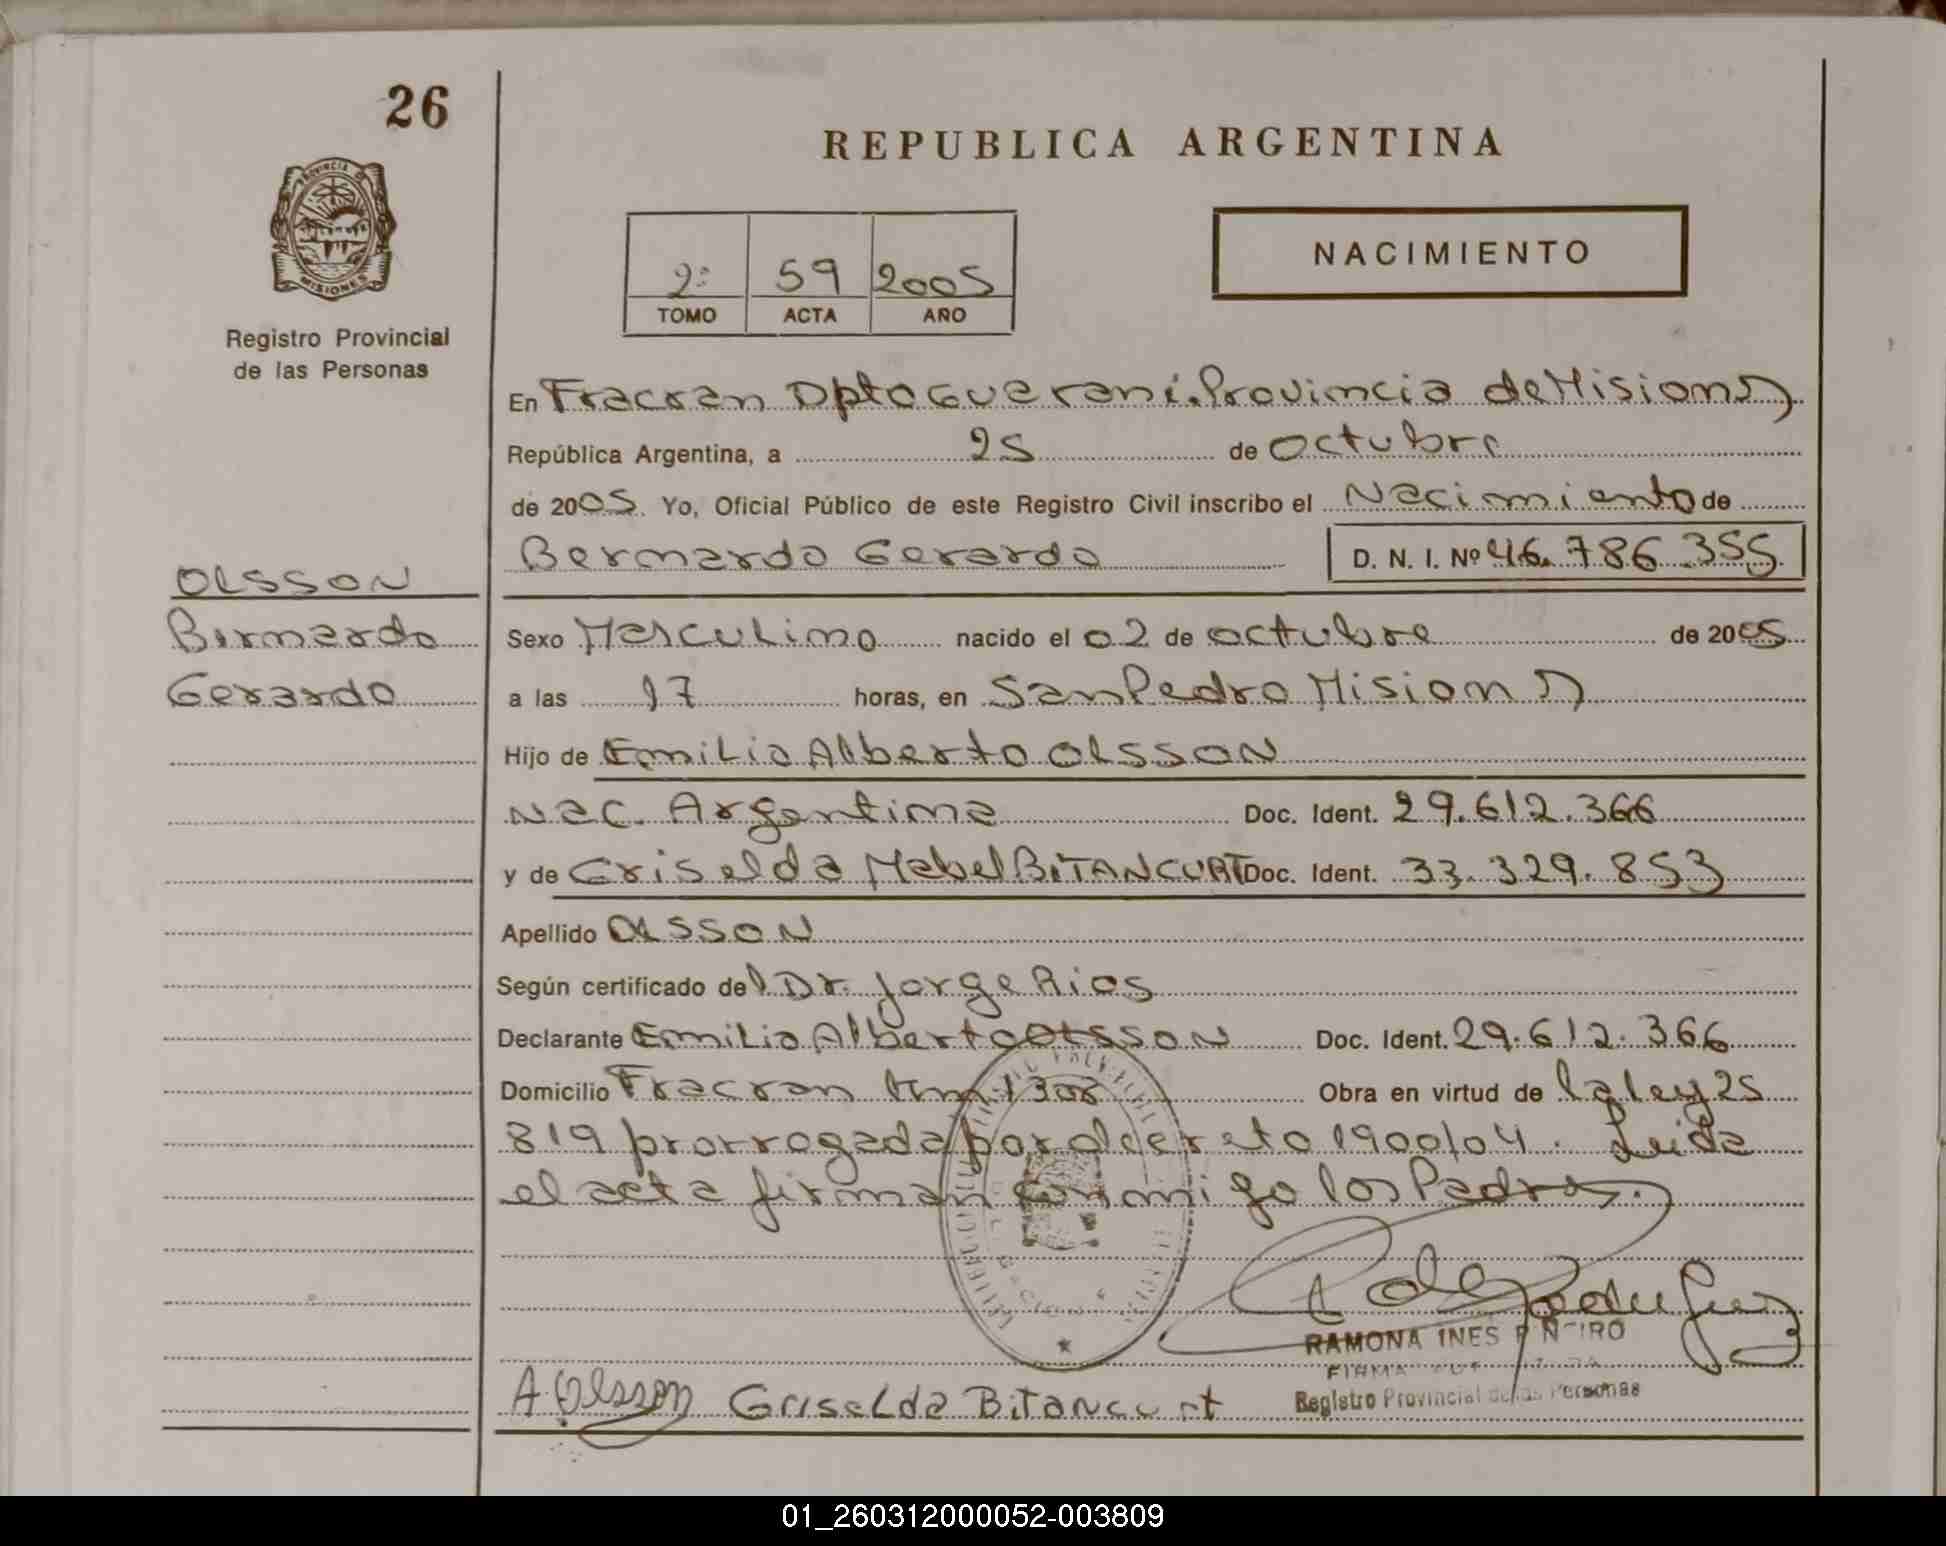 26
REPUBLICA ARGENTINA
PROVINCIA DE
MISIONES
Registro Provincial
de las Personas
2º 59 2005
TOMO ACTA AÑO
NACIMIENTO
En Fracran Dpto Guarani. Provincia de Misiones
República Argentina, a 25 de octubre
de 2005. Yo, Oficial Público de este Registro Civil inscribo el Nacimiento de
Bernardo Gerardo D. N. I. Nº 46.786.355
OLSSON
Bernardo
Gerardo
Sexo Masculino nacido el 02 de octubre de 2005
a las 17 horas, en San Pedro Misiones
Hijo de Emilio Alberto OLSSON
Nac. Argentina Doc. Ident. 29.612.366
y de Griselda Mabel BiTANCURT Doc. Ident. 33.329.853
Apellido OLSSON
Según certificado del Dr. Jorge Rios
Declarante Emilio Alberto OLSSON Doc. Ident. 29.612.366
Domicilio Fracran Km 1308 Obra en virtud de la ley 25
819 prorrogada por decreto 1900/04. Leida
el acta firman conmigo los Padres.
RAMONA INES
FIRMA
Registro Provincial de las Personas
A. Olsson Griselda Bitancurt
01_260312000052-003809